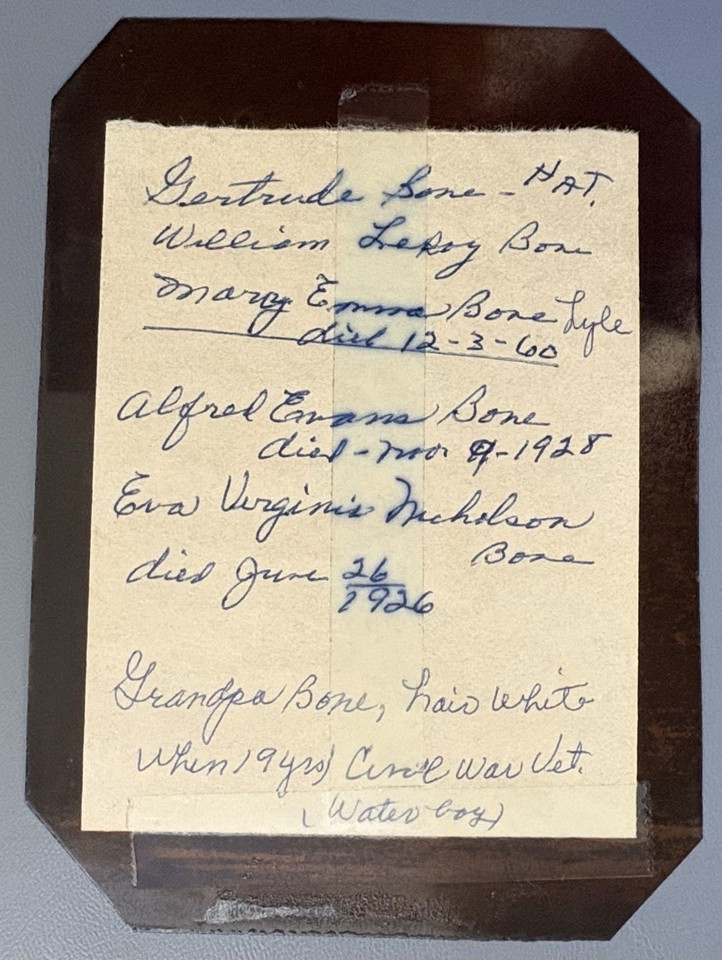 Gertrude Bone - HAT.
William LeRoy Bone
Mary Emma Bone Lyle
died 12-3-60
Alfred Evans Bone
died - Nov 9-1928
Eva Virginia Nicholson
Bone
died June 26
1926
Grandpa Bone, hair white
when 19 yrs) Civil War Vet.
(Water boy)